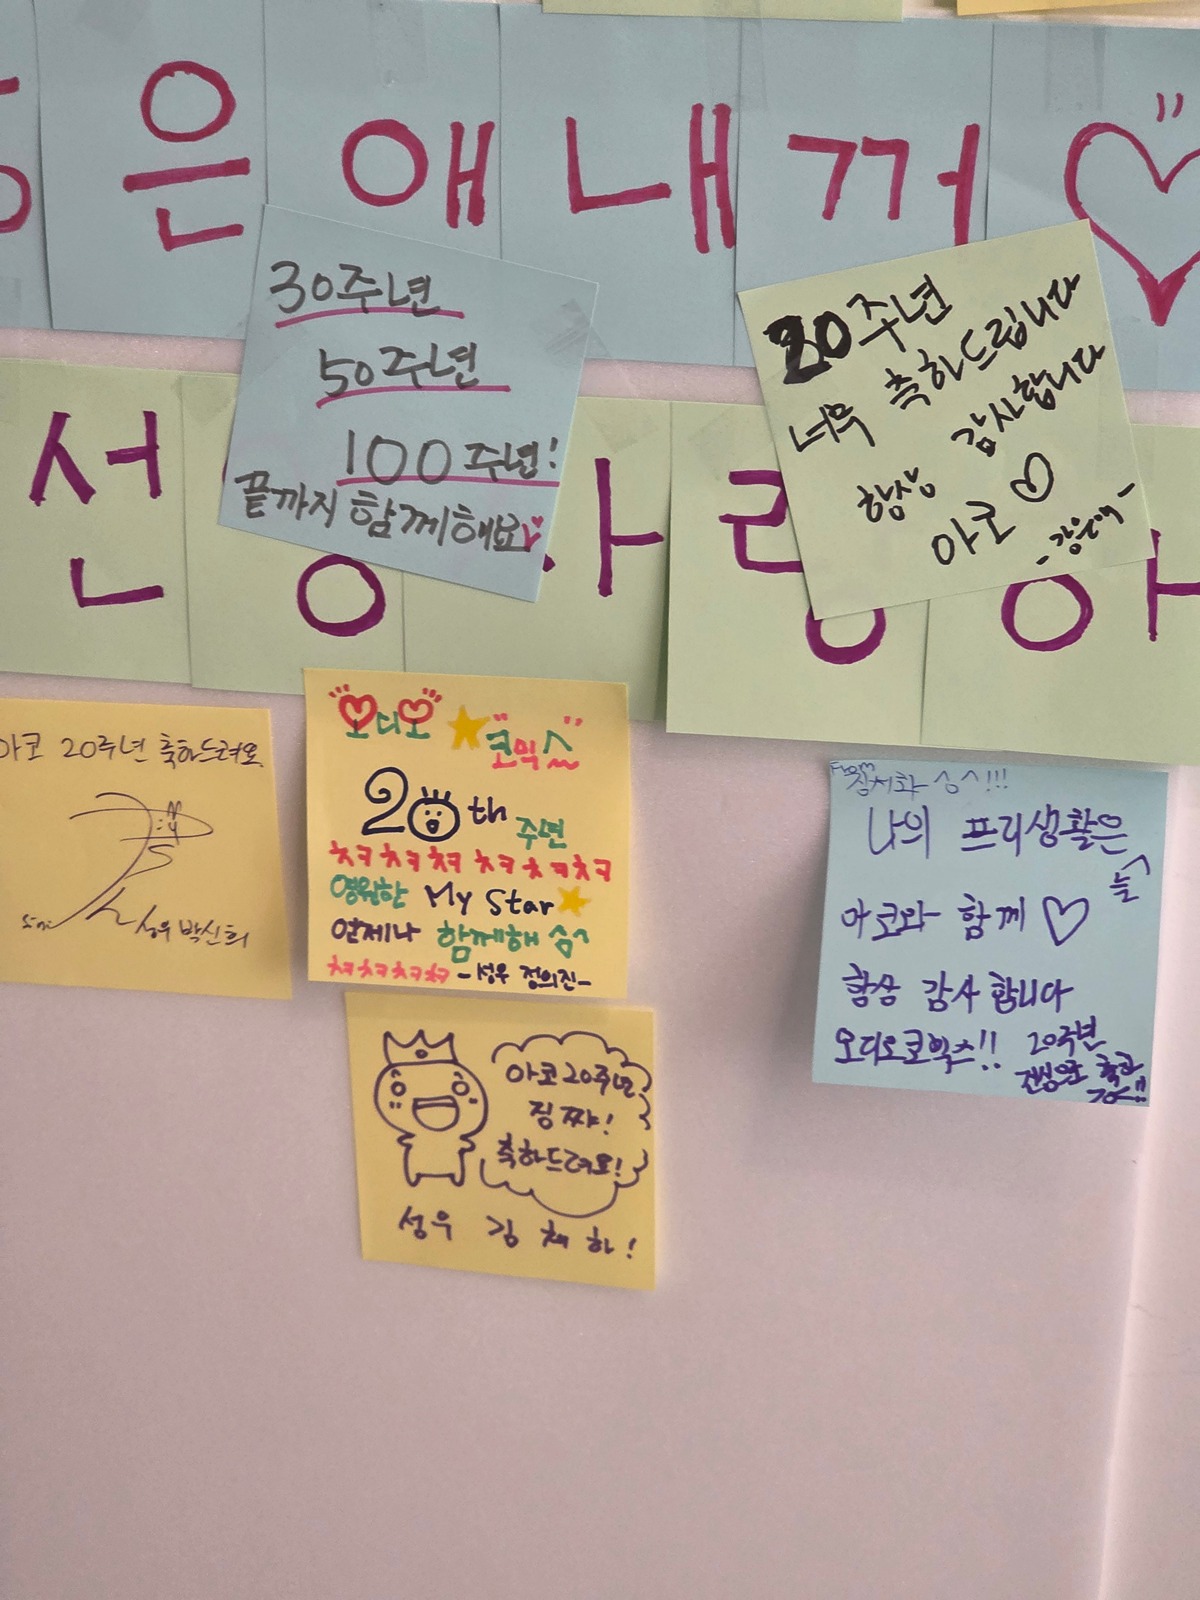 은애내꺼♡
30주년
50주년
100주년!
끝까지 함께해요
20주년
너무 축하드립니다
항상 감사합니다
아코♡
-강은애-
선
랑
아코 20주년 축하드려요
성우 박신희
오디오 ★ 코믹스
20th 주년
ㅊㅋㅊㅋㅊㅋ ㅊㅋㅊㅋㅊㅋ
영원한 My Star★
언제나 함께해 숨^
ㅊㅋㅊㅋㅊㅋㅊㅋ -성우 정의진-
아코 20주년
찡짜!
축하드려요!
성우 김채하!
From
나의 프리생활은
늘
아코와 함께 ♡
항상 감사합니다
오디오코믹스!! 20주년